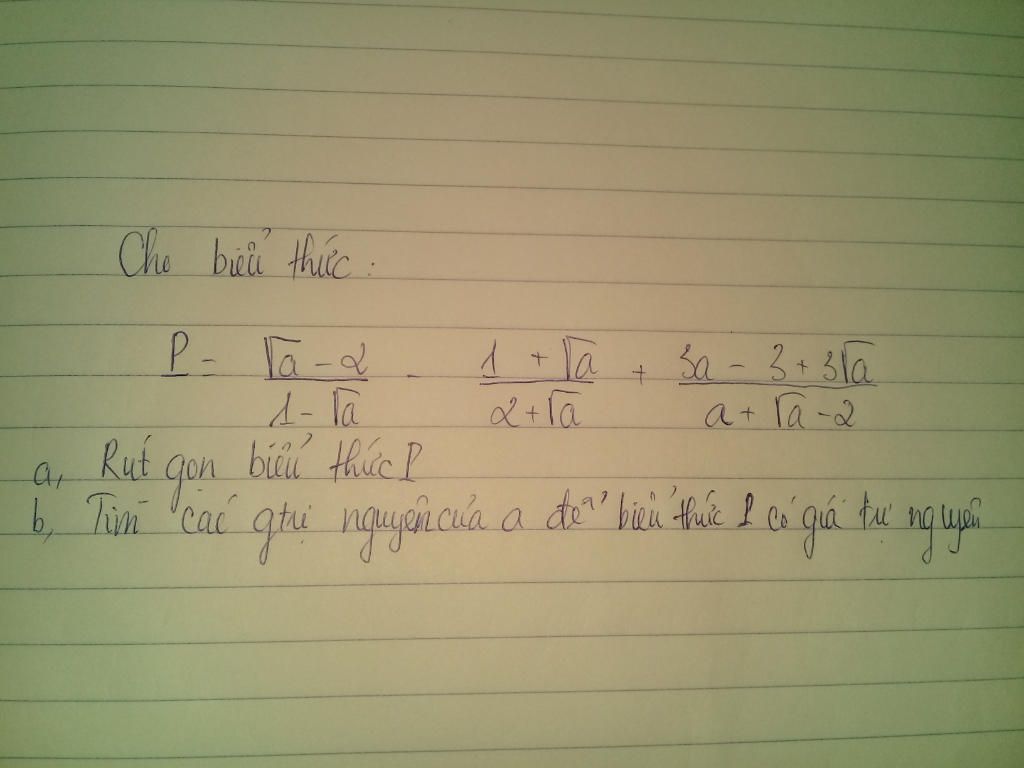 Cho biểu thức :
P = (√a - 2)/(1 - √a) - (1 + √a)/(2 + √a) + (3a - 3 + 3√a)/(a + √a - 2)
a, Rút gọn biểu thức P
b, Tìm các gtrị nguyên của a để biểu thức P có giá trị nguyên